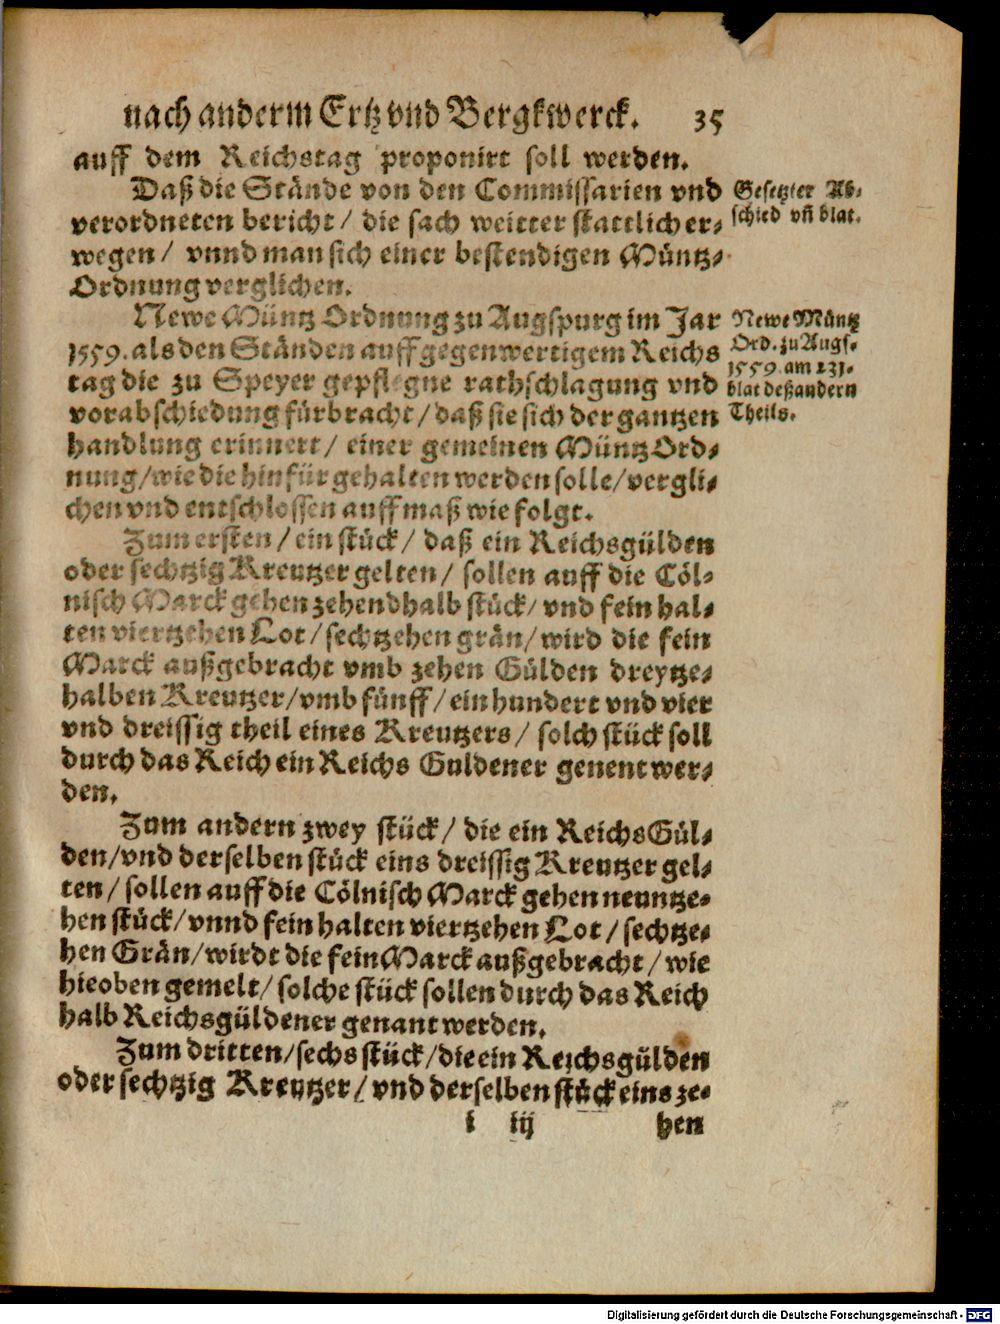 nach anderm Ertz vnd Bergkwerck. 35
auff dem Reichstag proponirt soll werden.
Daß die Stände von den Commissarien vnd
verordneten bericht / die sach weitter stattlich er⸗
wegen / vnnd man sich einer bestendigen Müntz⸗
Ordnung verglichen.
Gesetzter Ab⸗
schied vñ blat.
Newe Müntz Ordnung zu Augspurg im Jar
1559. als den Ständen auff gegenwertigem Reichs
tag die zu Speyer gepflegne rathschlagung vnd
vorabschiedung fürbracht / daß sie sich der gantzen
handlung erinnert / einer gemeinen Müntz Ord⸗
nung / wie die hinfür gehalten werden solle / vergli⸗
chen vnd entschlossen auff maß wie folgt.
Newe Müntz
Ord. zu Augs⸗
1559 am 131.
blat deß andern
Theils.
Zum ersten / ein stück / daß ein Reichsgülden
oder sechtzig Kreutzer gelten / sollen auff die Cöl⸗
nisch Marck gehen zehendhalb stück / vnd fein hal⸗
ten viertzehen Lot / sechtzehen grän / wird die fein
Marck außgebracht vmb zehen Gülden dreytze⸗
halben Kreutzer / vmb fünff / ein hundert vnd vier
vnd dreissig theil eines Kreutzers / solch stück soll
durch das Reich ein Reichs Guldener genent wer⸗
den.
Zum andern zwey stück / die ein Reichs Gül⸗
den / vnd derselben stück eins dreissig Kreutzer gel⸗
ten / sollen auff die Cölnisch Marck gehen neuntze⸗
hen stück / vnnd fein halten viertzehen Lot / sechtze⸗
hen Grän / wirdt die fein Marck außgebracht / wie
hieoben gemelt / solche stück sollen durch das Reich
halb Reichsgüldener genant werden.
Zum dritten / sechs stück / die ein Reichsgülden
oder sechtzig Kreutzer / vnd derselben stück eins ze⸗
i iij hen
Digitalisierung gefördert durch die Deutsche Forschungsgemeinschaft - DFG